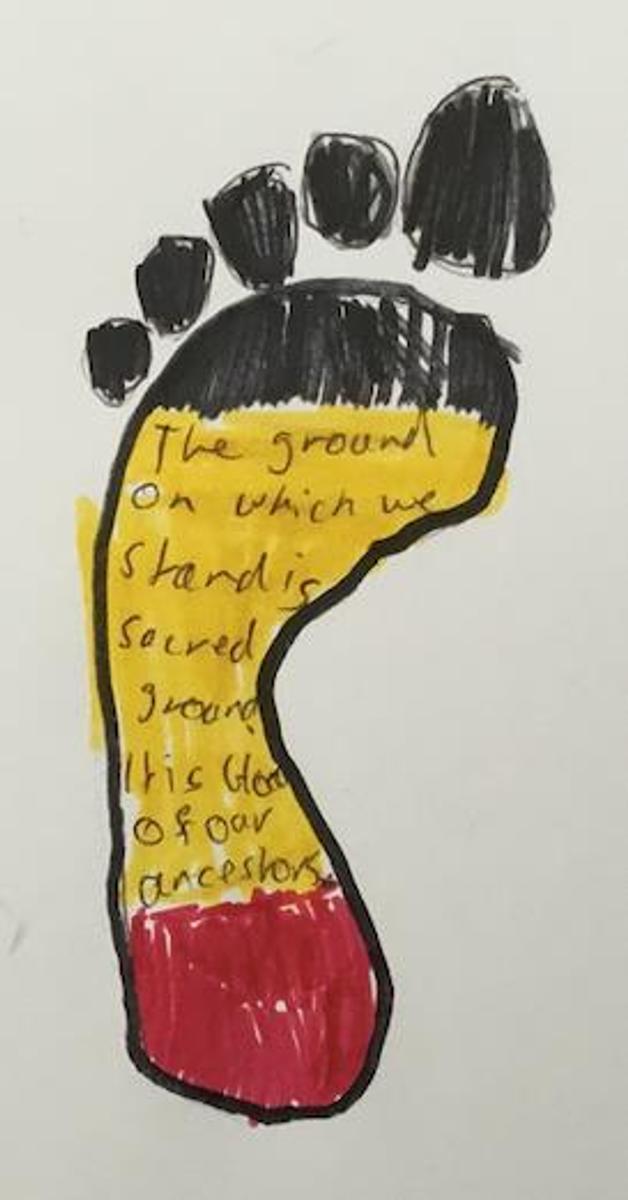 The ground
On which we
Stand is
Sacred
ground.
It is
of our
ancestors.